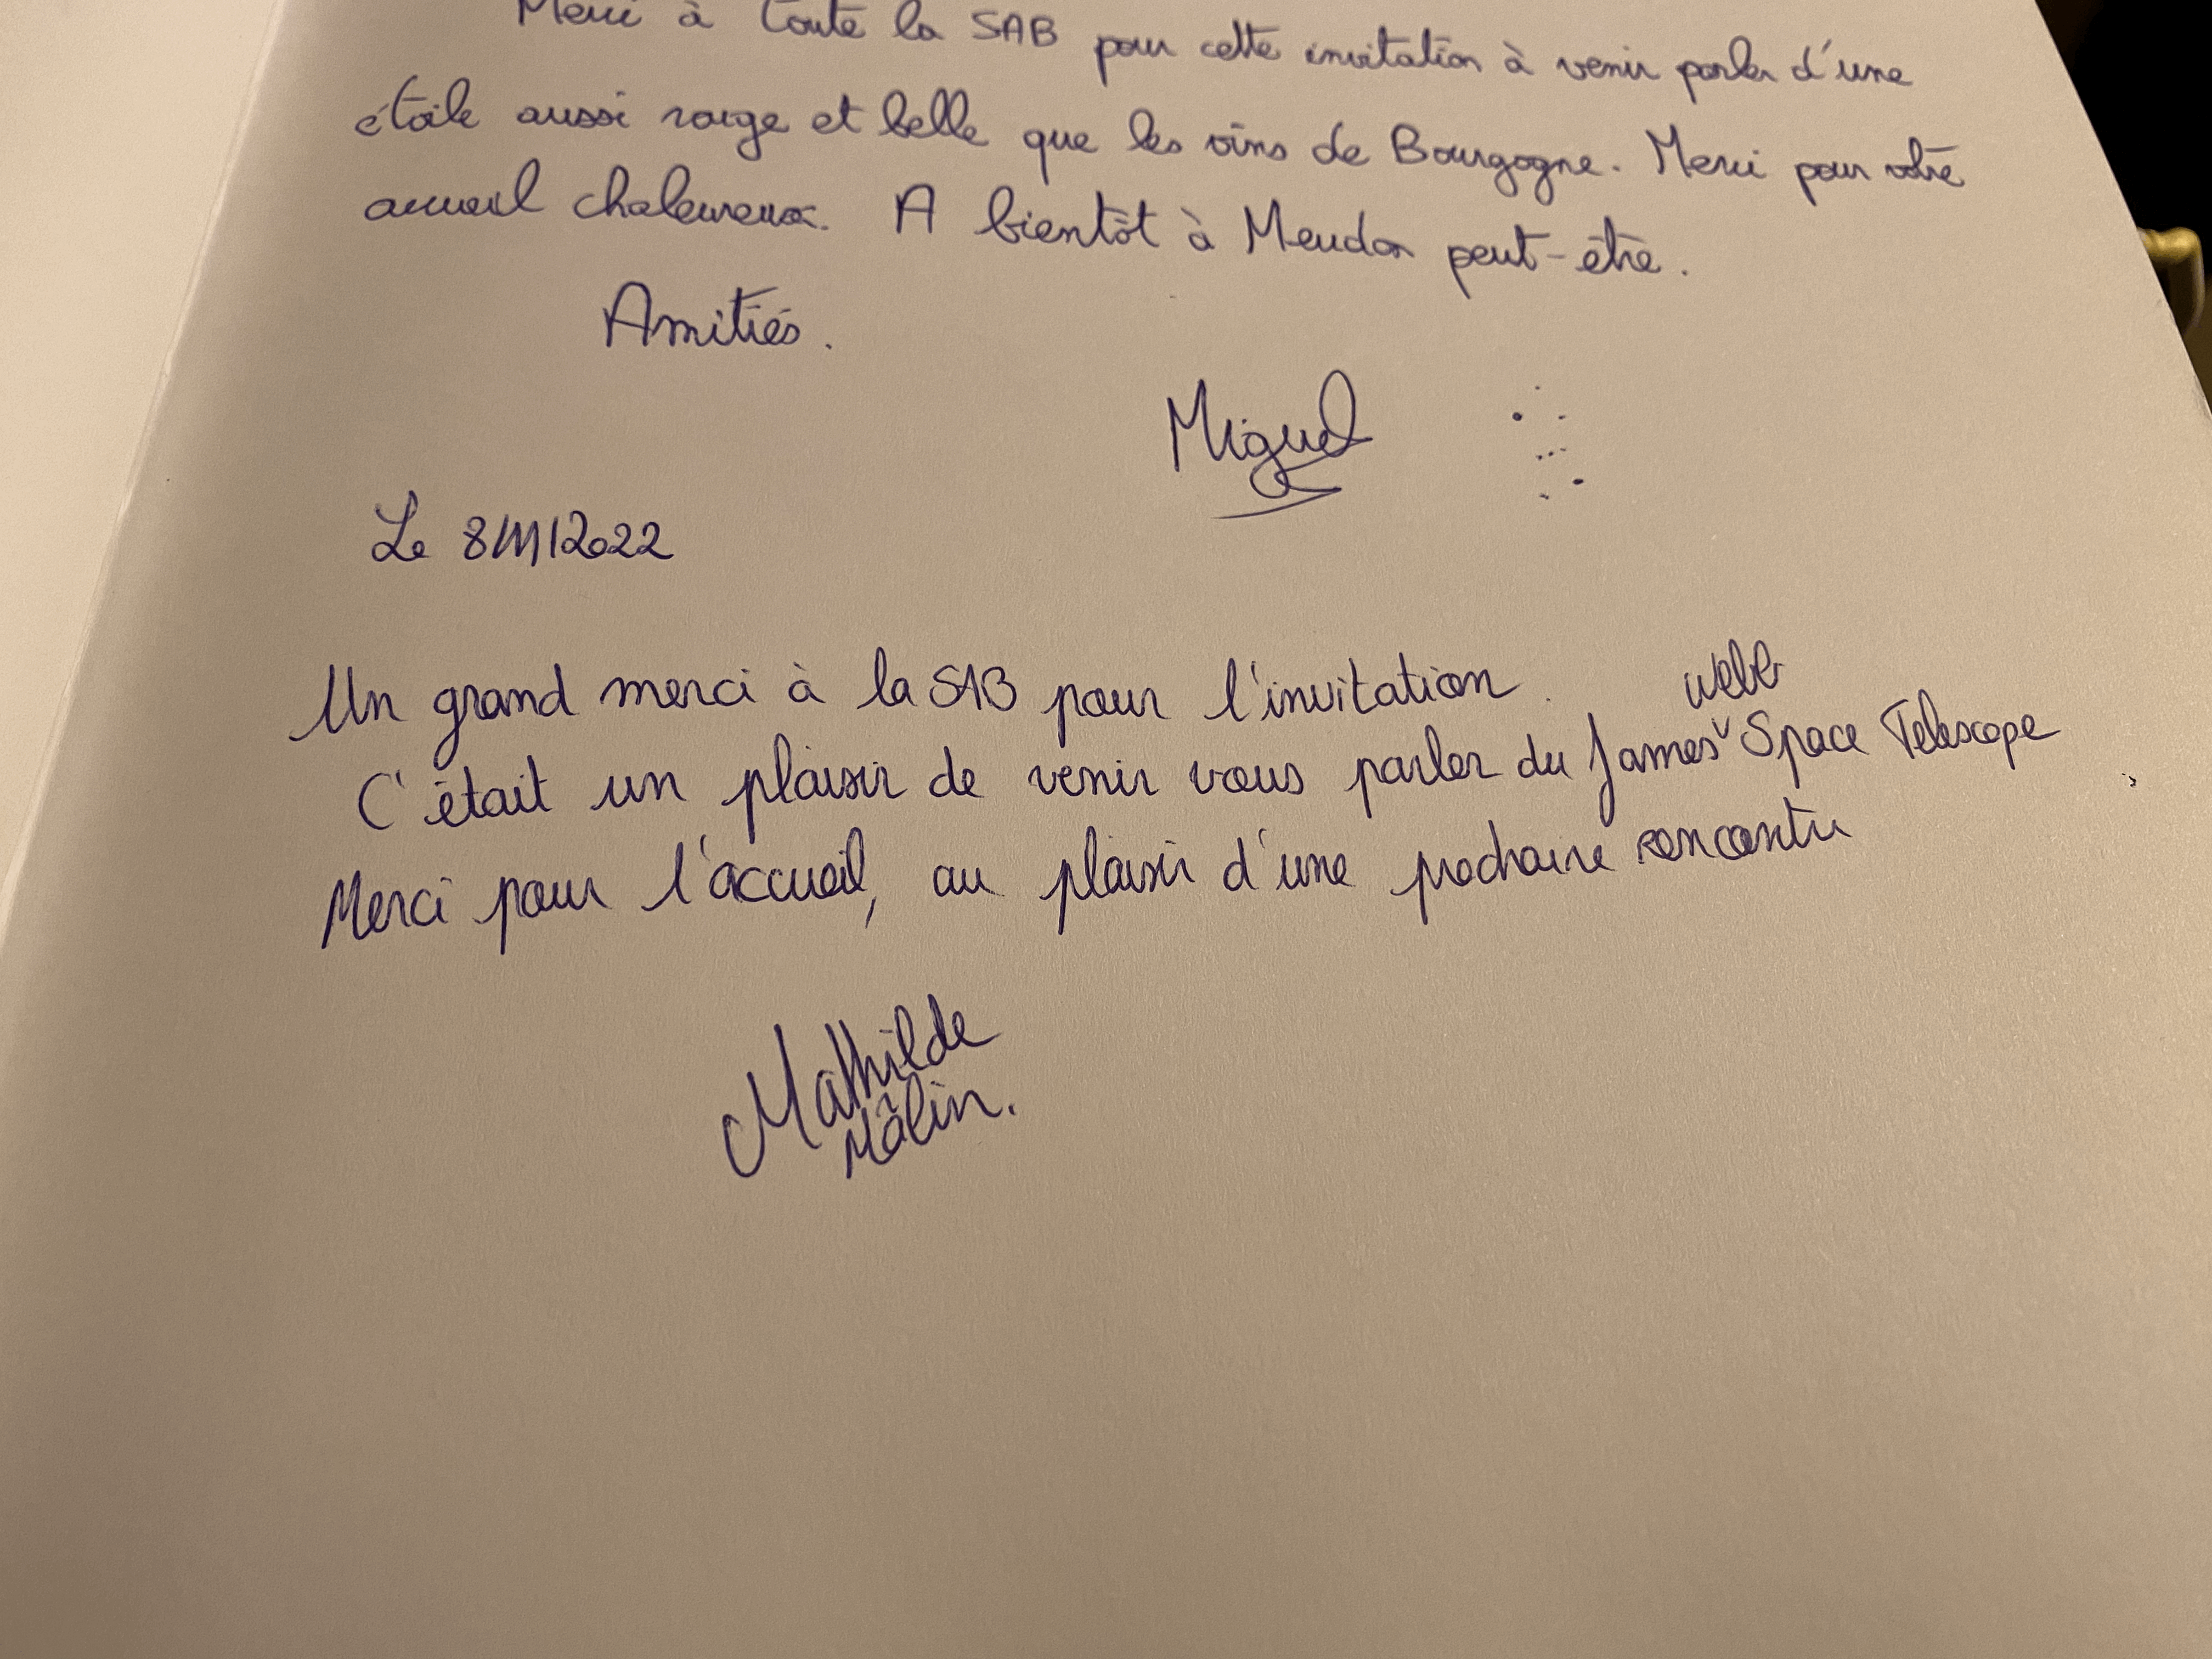 Merci à toute la SAB pour cette invitation à venir parler d'une
étoile aussi rouge et belle que les vins de Bourgogne. Merci pour votre
accueil chaleureux. A bientôt à Meudon peut-être.
Amitiés.
Miguel
Le 8/11/2022
Un grand merci à la SAB pour l'invitation.
C'était un plaisir de venir vous parler du James Webb Space Telescope
Merci pour l'accueil, au plaisir d'une prochaine rencontre
Mathilde
Mâlin.